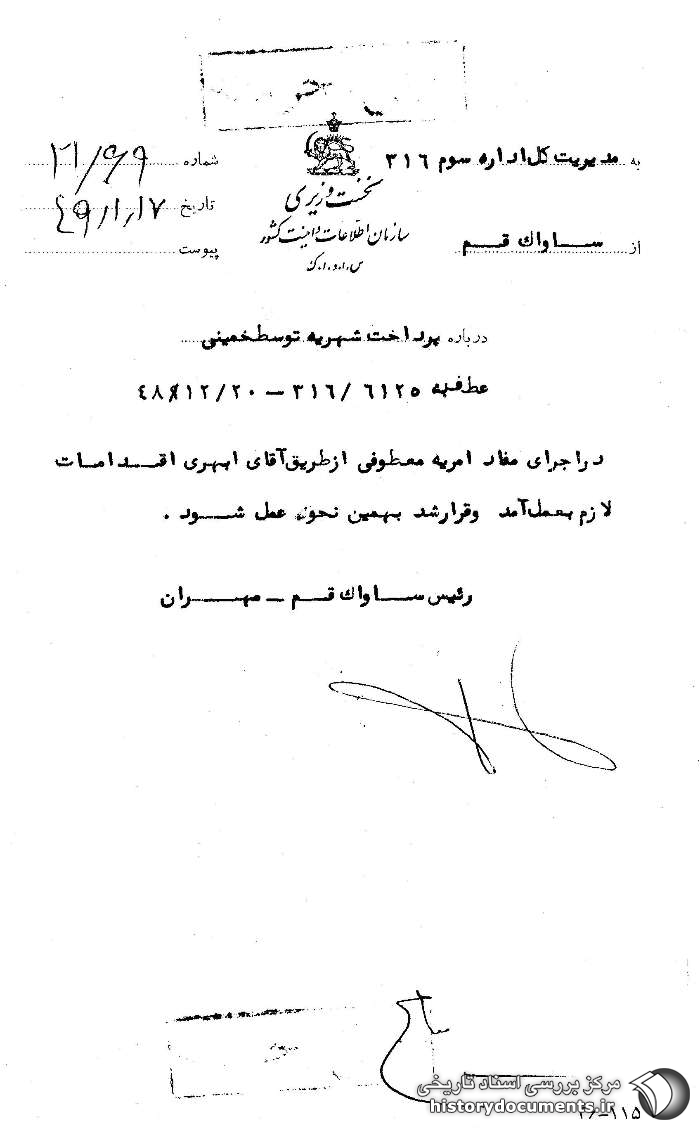 به مدیریت کل اداره سوم ۳۱۶
شماره ۲۱/۶۹
نخست وزیری
تاریخ ۴۹/۱/۱۷
سازمان اطلاعات و امنیت کشور
از ساواک قم
پیوست
س.ا.و.ا.ک
درباره پرداخت شهریه توسط خمینی
عطف به ۶۱۲۵ /۳۱۶ – ۴۸/۱۲/۲۰
در اجرای مفاد امریه معطوفی از طریق آقای ابهری اقدامات
لازم بعمل آمد و قرار شد بهمین نحو عمل شود .
رئیس ساواک قم – مهران
مرکز بررسی اسناد تاریخی
historydocuments.ir